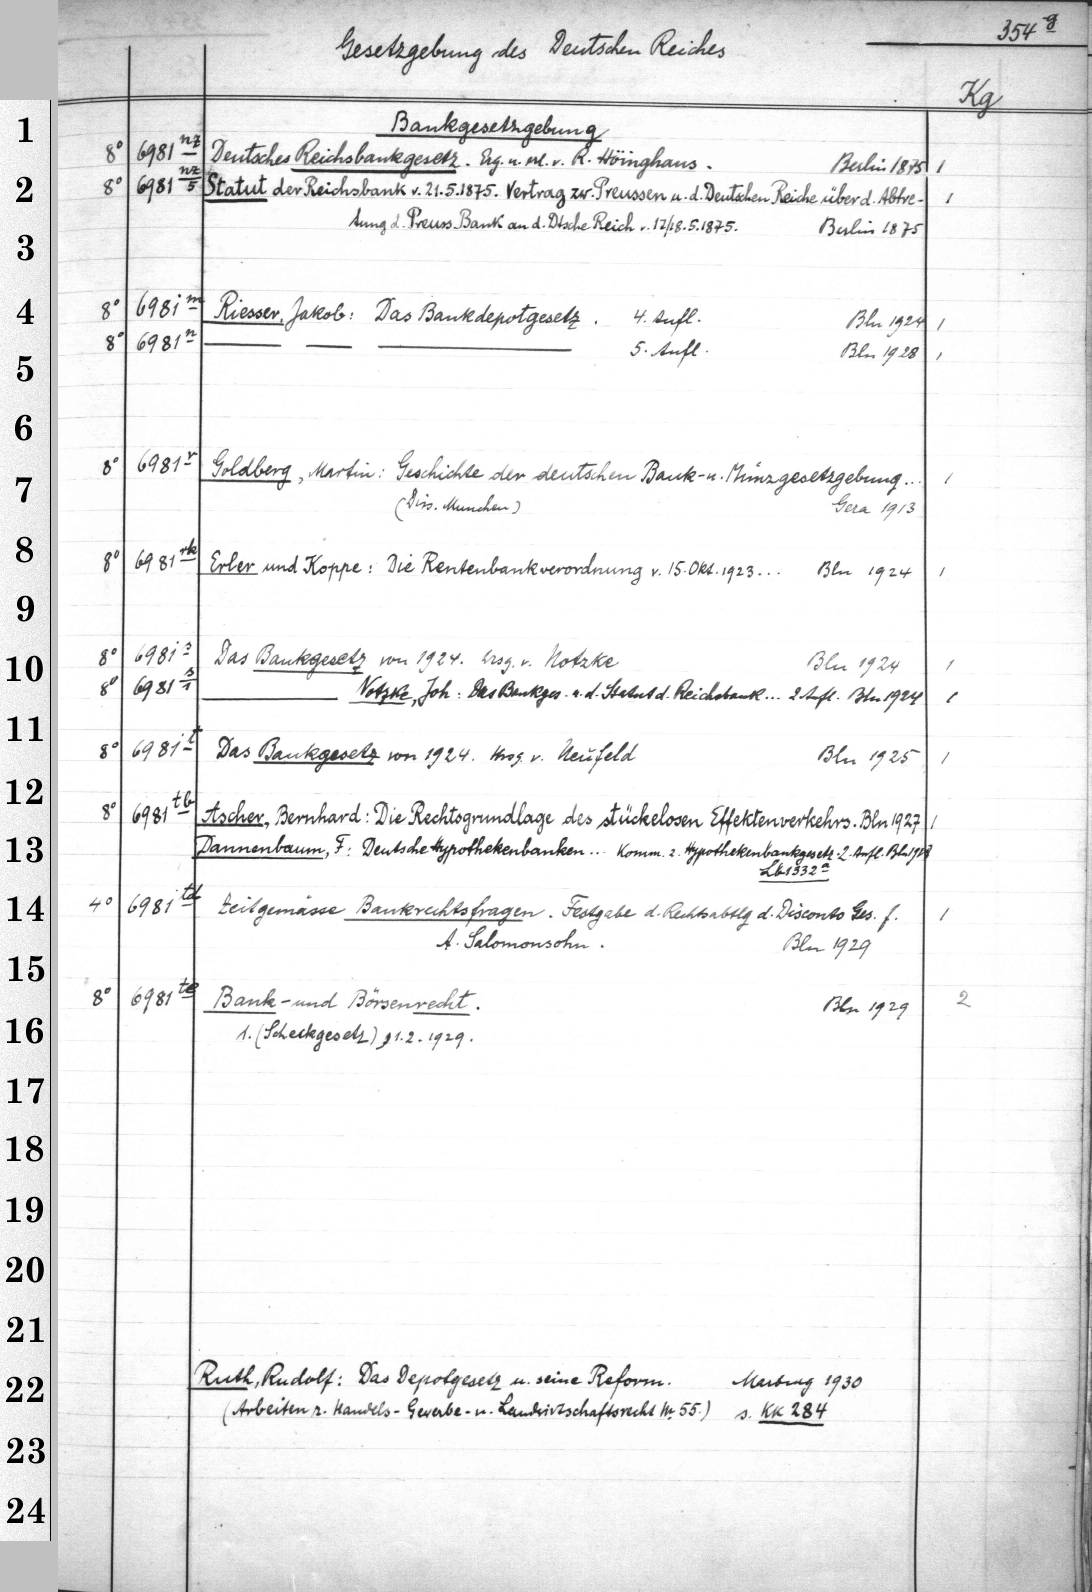 354 g
Gesetzgebung des Deutschen Reiches
Kg
Bankgesetzgebung
8° 6981 nz Deutsches Reichsbankgesetz. Erg. u. erl. v. R. Höinghaus. Berlin 1875 1
8° 6981 nz/5 Statut der Reichsbank v. 21.5.1875. Vertrag zw. Preussen u. d. Deutschen Reiche über d. Abtre- 1
tung d. Preuss. Bank an d. Dtsche Reich v. 17/18.5.1875. Berlin 1875
8° 6981 m Riesser, Jakob: Das Bankdepotgesetz. 4. Aufl. Bln 1924 1
8° 6981 n — — — 5. Aufl. Bln 1928 1
8° 6981 r Goldberg, Martin: Geschichte der deutschen Bank- u. Münzgesetzgebung... 1
(Diss. München) Gera 1913
8° 6981 rk Erler und Koppe: Die Rentenbankverordnung v. 15. Okt. 1923... Bln 1924 1
8° 6981 s Das Bankgesetz von 1924. Hrsg. v. Notzke Bln 1924 1
8° 6981 s/1 — Notzke, Joh: Das Bankges. u. d. Statut d. Reichsbank... 2 Aufl. Bln 1924 1
8° 6981 t Das Bankgesetz von 1924. Hrsg. v. Neufeld Bln 1925 1
8° 6981 tb Ascher, Bernhard: Die Rechtsgrundlage des stückelosen Effektenverkehrs. Bln 1927 1
Dannenbaum, F: Deutsche Hypothekenbanken... Komm. z. Hypothekenbankgesetz. 2. Aufl. Bln 1928
Lk 1332 a
4° 6981 td Zeitgemässe Bankrechtsfragen. Festgabe d. Rechtsabtlg d. Disconto Ges. f. 1
A. Salomonsohn. Bln 1929
8° 6981 te Bank- und Börsenrecht. Bln 1929 2
1. (Scheckgesetz) 1.2.1929.
Ruth, Rudolf: Das Depotgesetz u. seine Reform. Marburg 1930
(Arbeiten z. Handels- Gewerbe- u. Landwirtschaftsrecht Nr 55.) s. KK 284
1
2
3
4
5
6
7
8
9
10
11
12
13
14
15
16
17
18
19
20
21
22
23
24